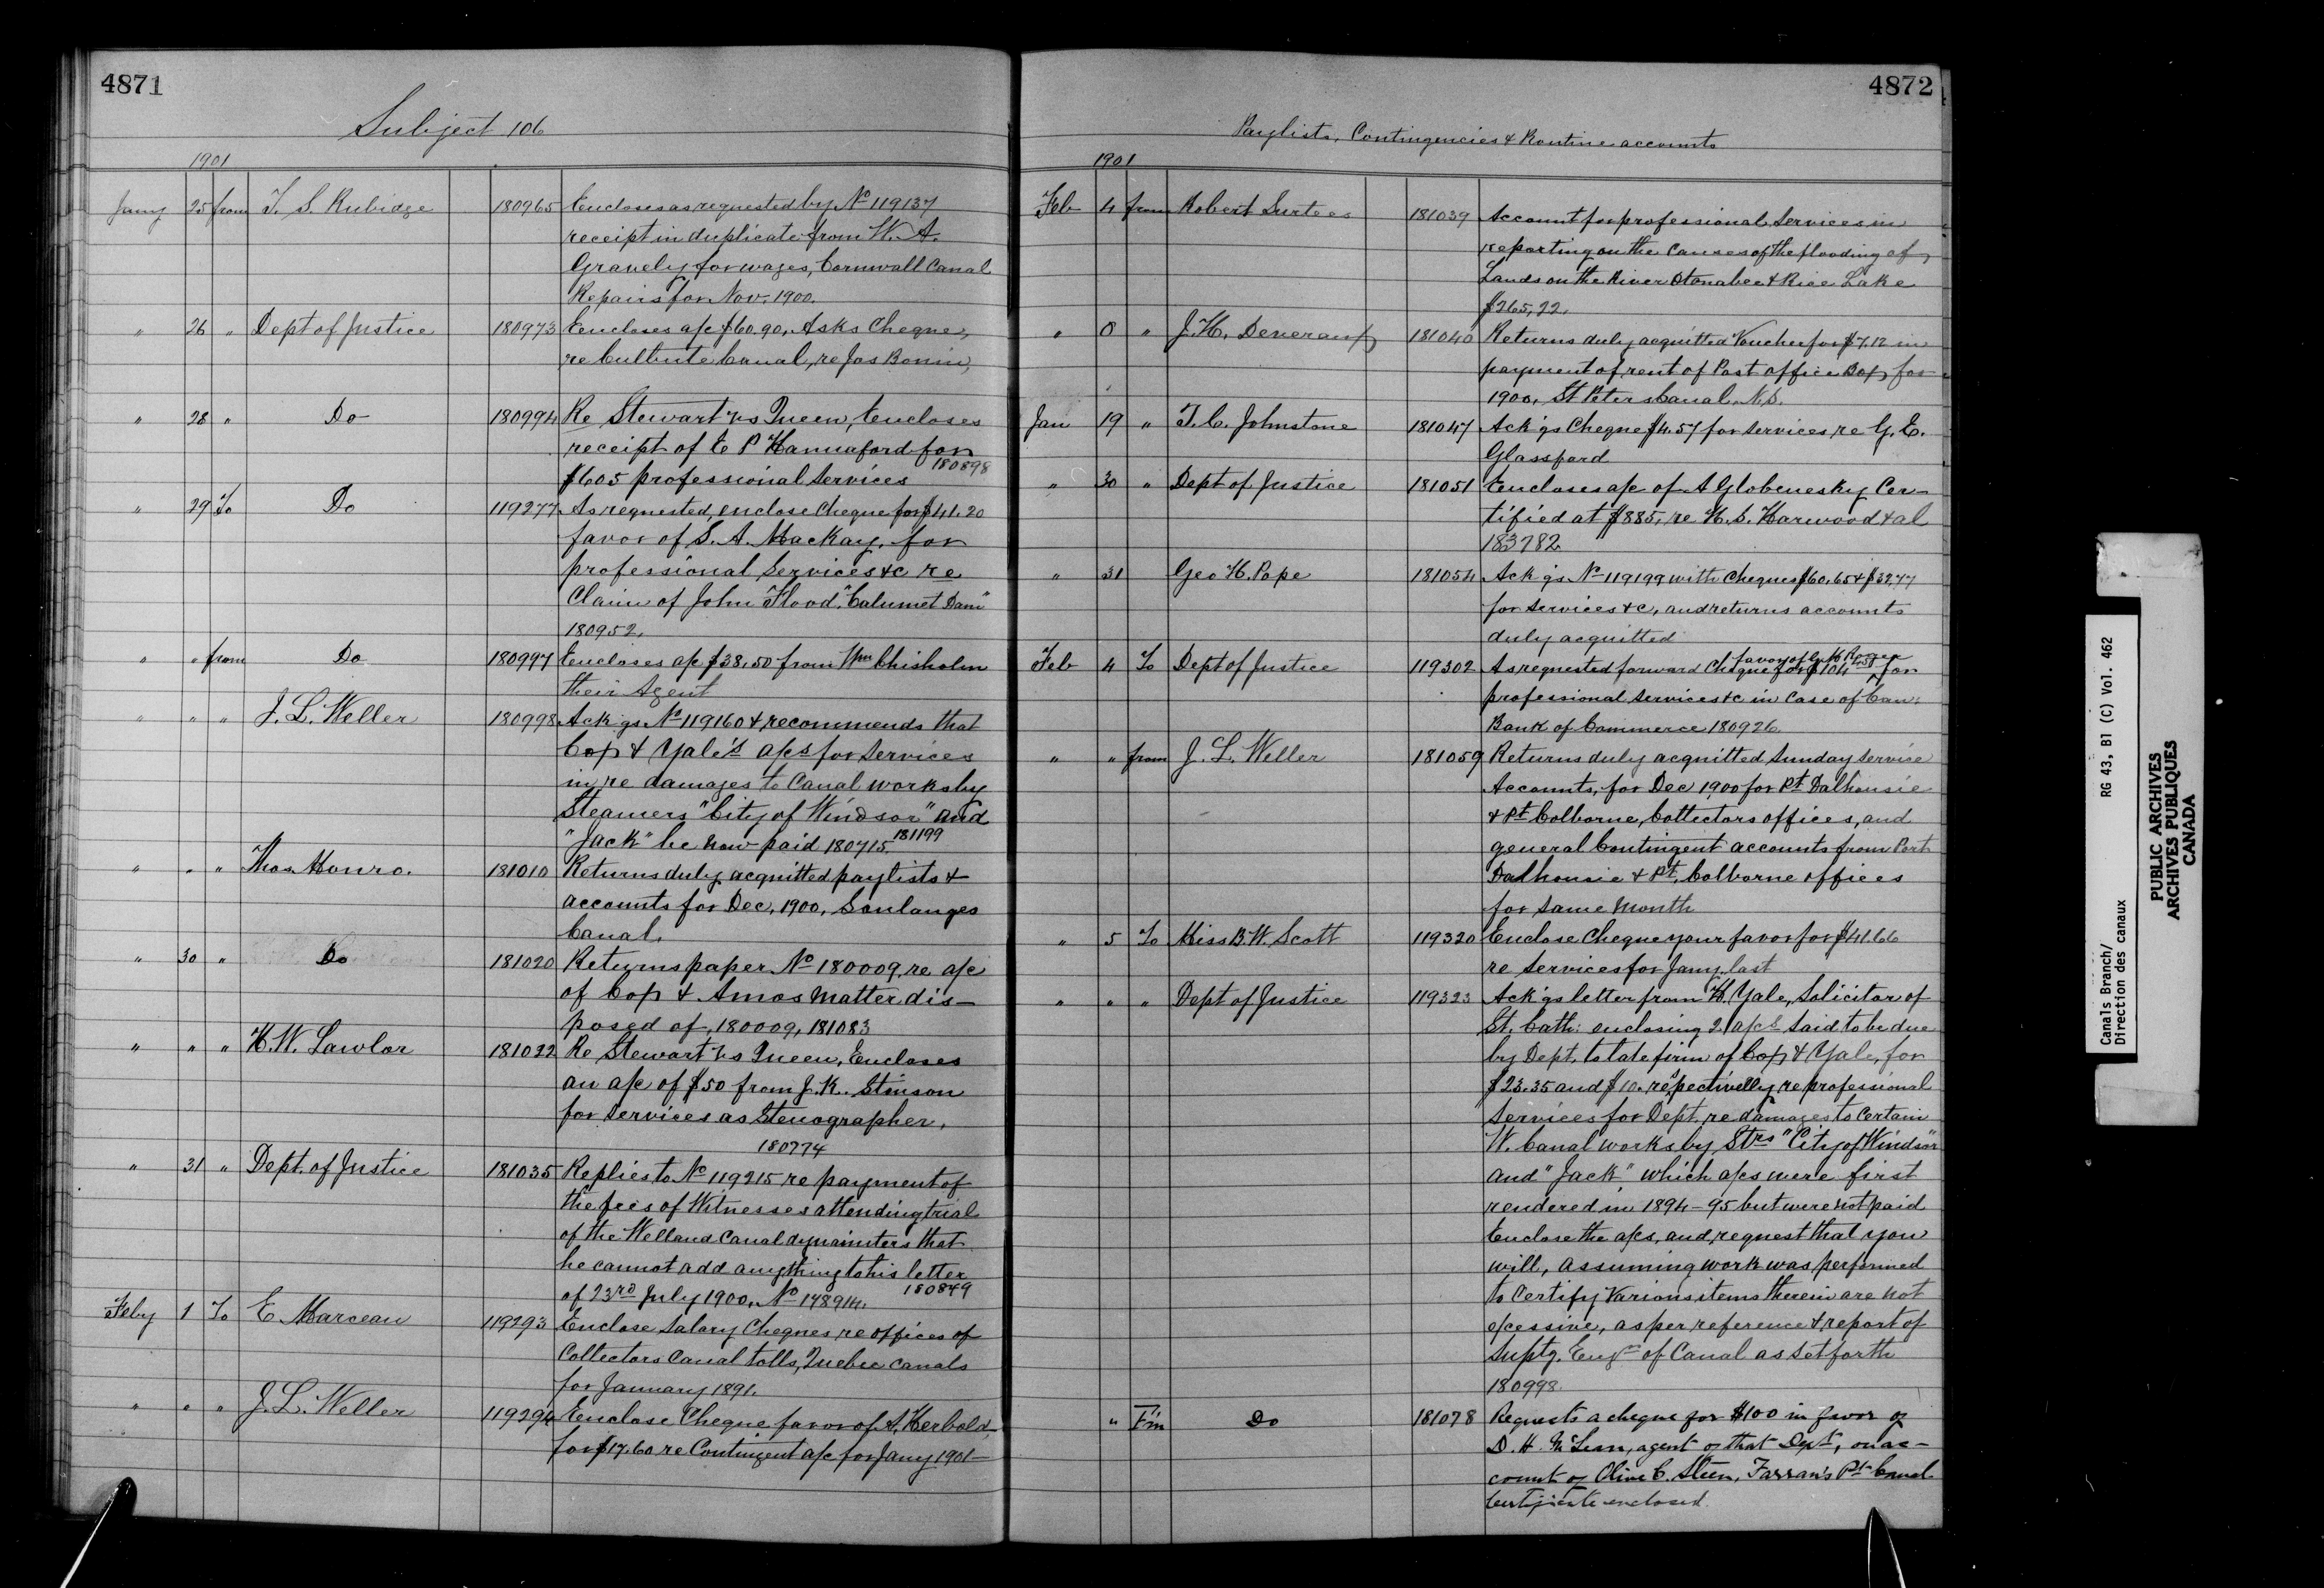 4871
Subject 106
1901
Jany 25 from T. S. Rubidge 180965 Encloses as requested by No 119137
receipt in duplicate from W. A.
Gravely for wages, Cornwall Canal
Repairs for Nov. 1900.
" 26 " Dept of Justice 180973 Encloses a/c $60.90. Asks Cheque,
re Culbute Canal, re Jos Bonin,
" 28 " Do 180994 Re Stewart vs Queen, Encloses
receipt of E P Hannaford for
$605 professional services 180898
" 29 To Do 119277 As requested, enclose Cheque for $41.20
favor of S. A. MacKay, for
professional services &c re
Claim of John Flood, "Calumet Dam"
180952.
" " from Do 180997 Encloses a/c $38.50 from Wm Chisholm
their Agent
" " " J. L. Weller 180998 Ack'gs No 119160 & recommends that
Cox & Yale's a/cs for services
in re damages to Canal works by
Steamers "City of Windsor" and
"Jack" be now paid 180715. 181199
" " " Thos. Monro. 181010 Returns duly acquitted paylists &
accounts for Dec. 1900, Soulanges
Canal.
" 30 " Do 181020 Returns paper No 180009, re a/c
of Cox & Amos matter dis-
posed of, 180009, 181083
" " " H. W. Lawlor 181022 Re Stewart vs Queen, Encloses
an a/c of $50 from J. K. Stinson
for services as Stenographer.
180774
" 31 " Dept. of Justice 181035 Replies to No 119215 re payment of
the fees of Witnesses attending trial
of the Welland Canal dynamiters that
he cannot add anything to his letter
of 23rd July 1900, No 178914. 180849
Feby 1 To E. Marceau 119293 Enclose Salary Cheques, re offices of
Collectors Canal tolls, Quebec canals
for January 1891.
" " " J. L. Weller 119294 Enclose Cheque favor of A. Herbold
for $17.60 re Contingent a/c for Jany 1901-
4872
Paylists, Contingencies & Routine accounts
1901
Feb 4 from Robert Surtees 181039 Account for professional Services in
reporting on the causes of the flooding of
Lands on the River Otonabee & Rice Lake
$265.22.
" 8 " J. H. Devereaux 181040 Returns duly acquitted Voucher for $7.12 in
payment of rent of Post office Box for
1900, St Peters Canal, N.S.
Jan 19 " T. C. Johnstone 181047 Ack'gs Cheque $4.57 for services re G. E.
Glassford
" 30 " Dept of Justice 181051 Encloses a/c of A Globensky Cer-
tified at $885, re H. S. Harwood & al
183782
" 31 Geo H. Pope 181054 Ack'gs No 119199 with Cheques $60.65 & $32.77
for services &c, and returns accounts
duly acquitted
Feb 4 To Dept of Justice 119302 As requested forward Cheque for $104.50 favor of G. M. Roger for
professional services &c in Case of Can:
Bank of Commerce 180926.
" " from J. L. Weller 181059 Returns duly acquitted Sunday service
Accounts, for Dec 1900 for Pt Dalhousie
& Pt Colborne, Collectors offices, and
general Contingent accounts from Port
Dalhousie & Pt. Colborne offices
for same month
" 5 To Miss B. W. Scott 119320 Enclose Cheque your favor for $41.66
re services for Jany. last
" " " Dept of Justice 119323 Ack'gs letter from H. Yale, Solicitor of
St. Cath: enclosing 2 a/cs said to be due
by Dept. to late firm of Cox & Yale, for
$23.35 and $10. respectivelly, re professional
services for Dept. re damages to certain
W. Canal works by Strs "City of Windsor"
and "Jack," which a/cs were first
rendered in 1894-95 but were not paid
Enclose the a/cs, and request that you
will, assuming work was performed
to Certify various items therein are not
excessive, as per reference & report of
Suptg. Engr of Canal as set forth
180998.
" F'm Do 181078 Requests a cheque for $100 in favor of
D. H. McLean, agent of that Dept, on ac-
count of Olive C. Steen, Farran's Pt Canal.
Certificate enclosed.
Canals Branch/
Direction des canaux
RG 43, B1 (C) Vol. 462
PUBLIC ARCHIVES
ARCHIVES PUBLIQUES
CANADA